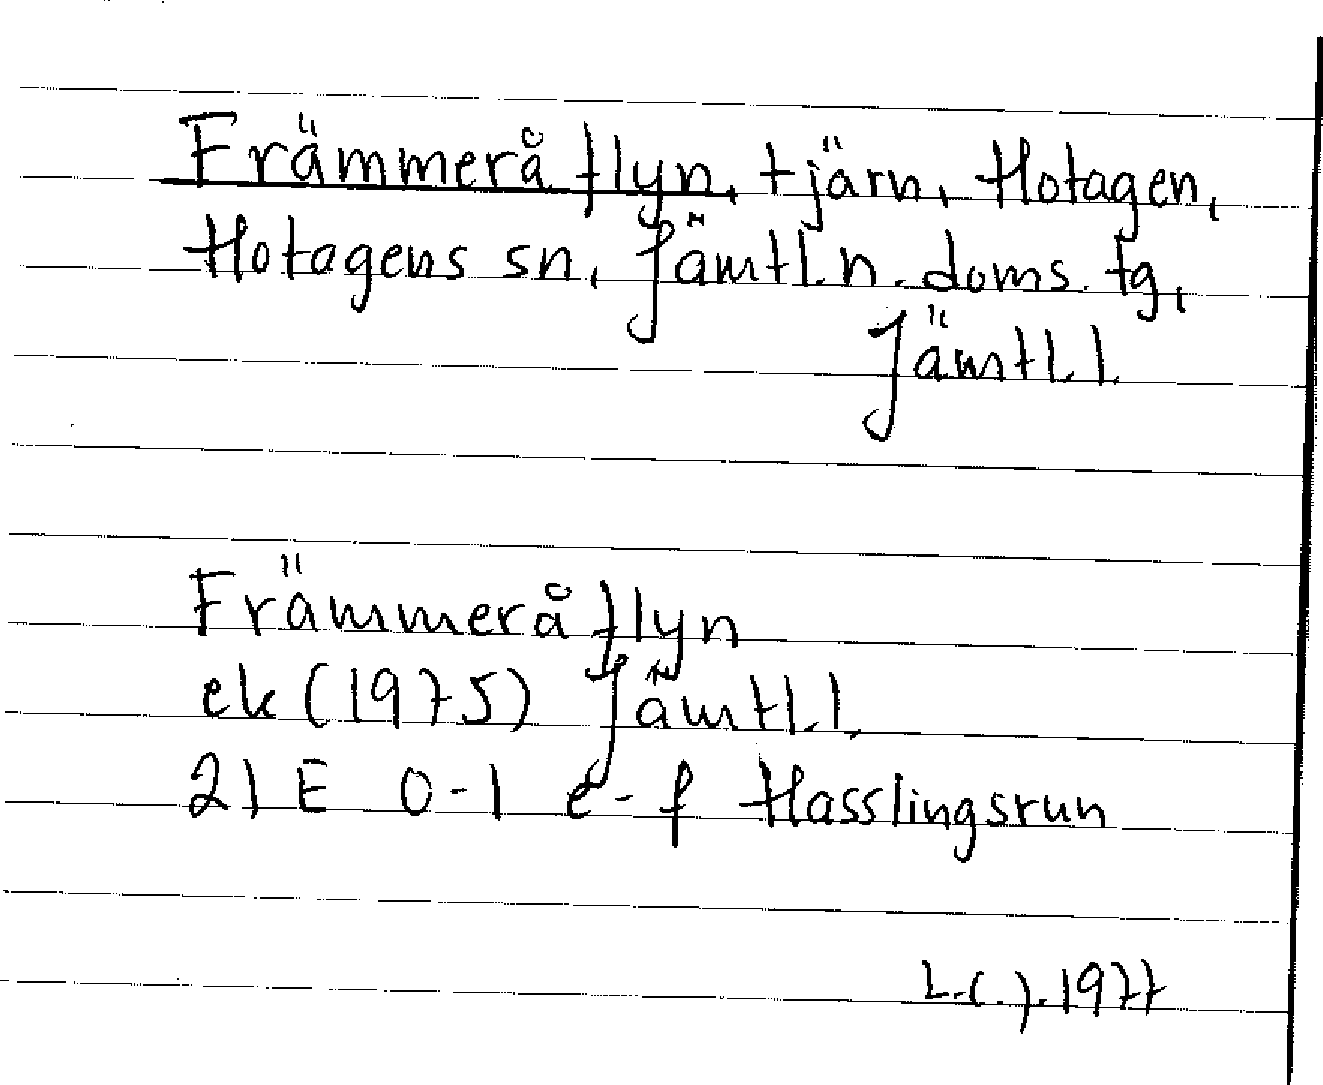 Främmeråflyn, tjärn, Hotagen,
Hotagens sn, Jämtl. n. doms. tg,
Jämtl. l.
Främmeråflyn
ek (1975) Jämtl. l.
21 E 0-1 e-f Hasslingsrun
1977